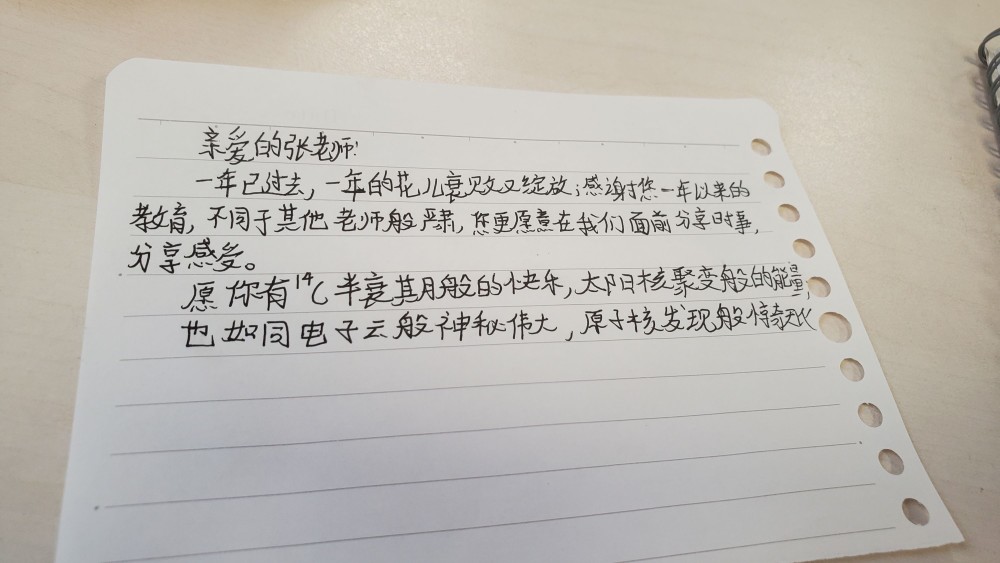 亲爱的张老师:
一年已过去,一年的花儿衰败又绽放;感谢您一年以来的
教育,不同于其他老师般严肃,您更愿意在我们面前分享时事,
分享感受。
愿你有¹⁴C半衰期般的快乐,太阳核聚变般的能量,
也如同电子云般神秘伟大,原子核发现般惊奇